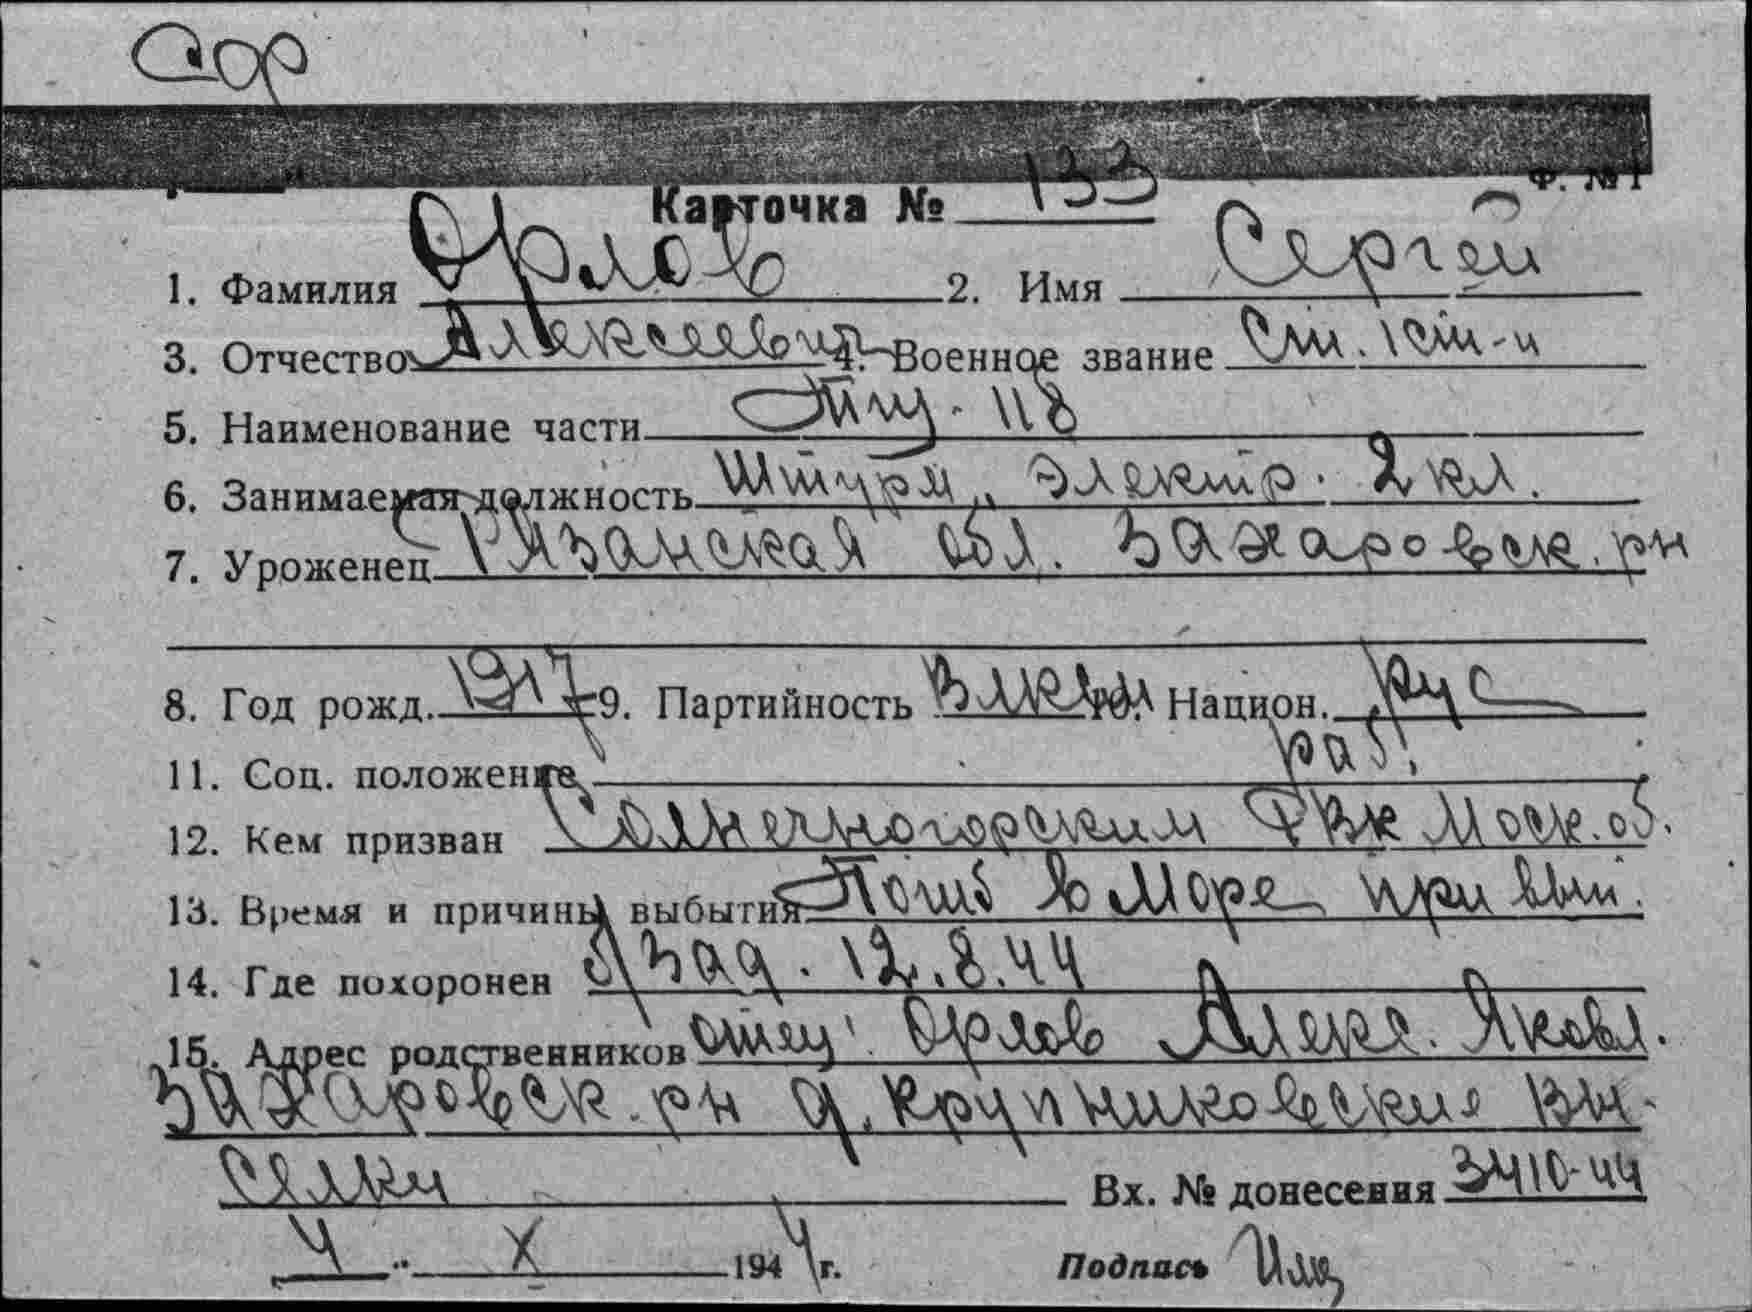 Ф. № 1
Карточка № 133
1. Фамилия Орлов 2. Имя Сергей
3. Отчество Алексеевич 4. Военное звание Ст. 1 ст-и
5. Наименование части
6. Занимаемая должность Штурм. электр. 2 кл.
7. Уроженец Рязанская обл. Захаровск. рн
8. Год рожд. 1917 9. Партийность ВЛКСМ 10. Национ. рус
11. Соц. положение раб.
12. Кем призван Солнечногорским РВК Моск. об.
13. Время и причины выбытия Погиб в море при вып.
14. Где похоронен з ад. 12.8.44
15. Адрес родственников отец: Орлов Алекс. Яковл.
Захаровск. рн д. Крупниковские вы-
селки Вх. № донесения 3410-44
4 " X 1944 г. Подпись